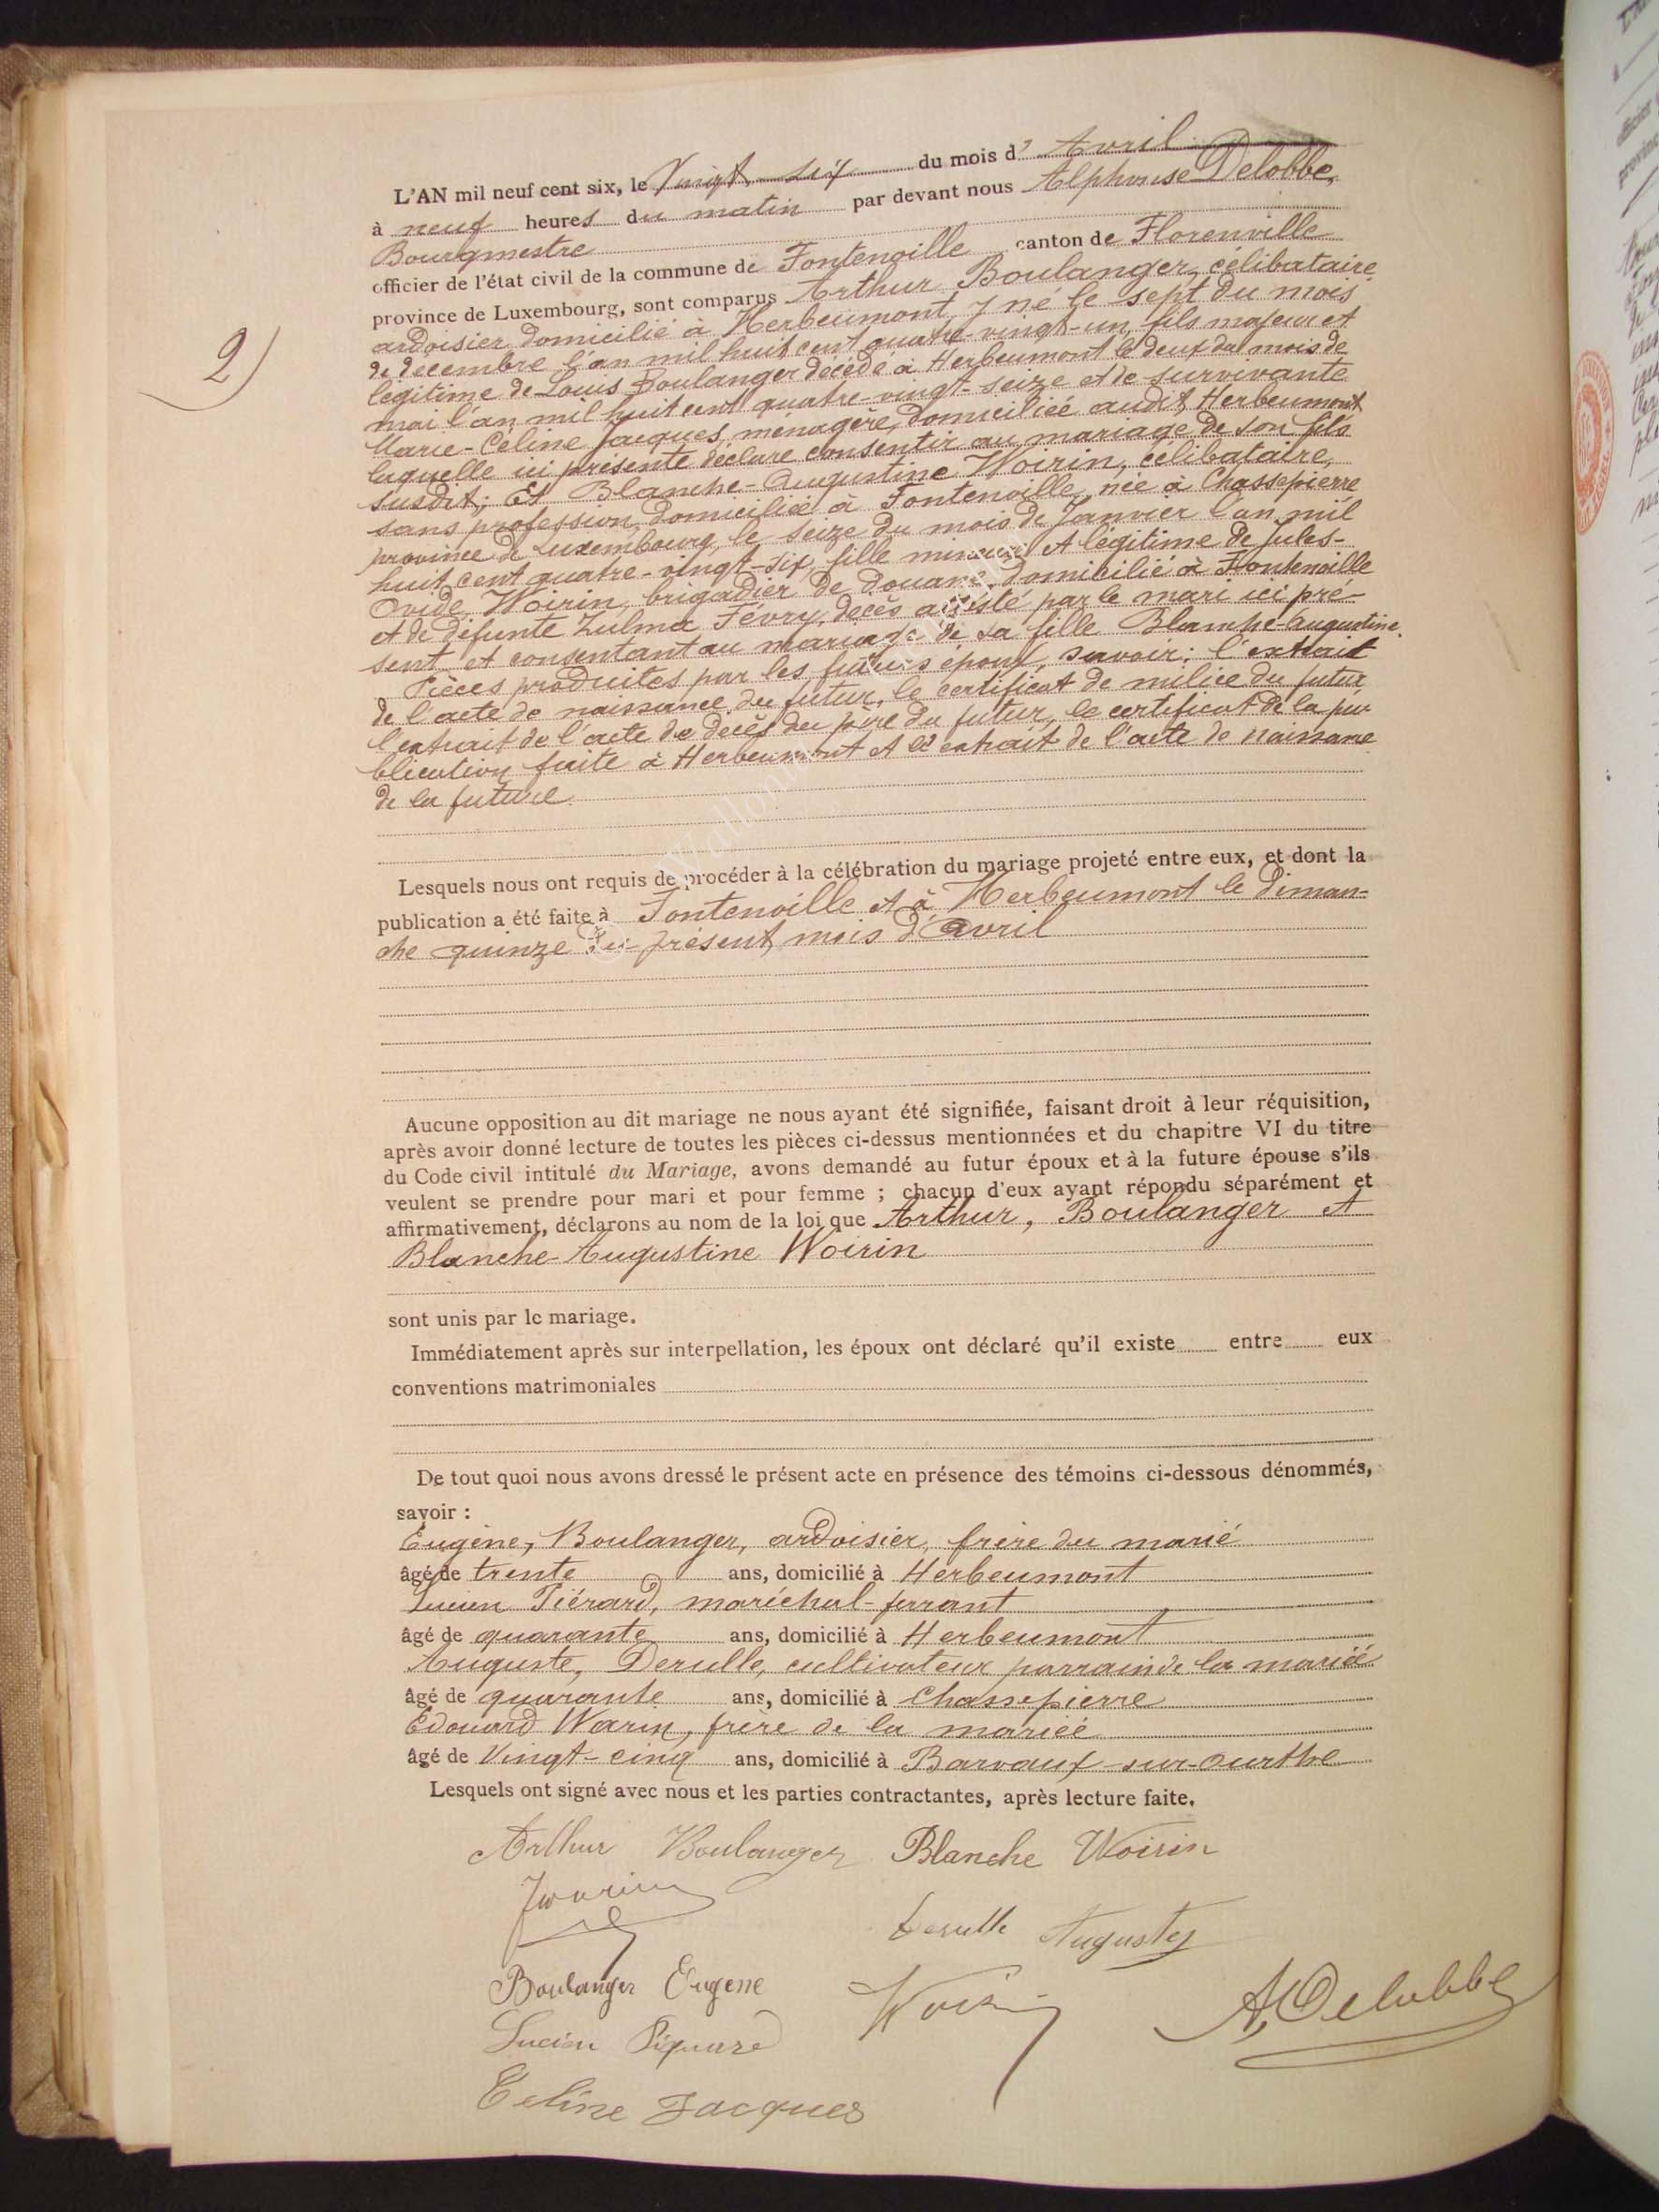 2)
L'AN mil neuf cent six, le Vingt-six du mois d' Avril
à neuf heures du matin par devant nous Alphonse Delobbe,
Bourgmestre
officier de l'état civil de la commune de Fontenoille canton de Florenville
province de Luxembourg, sont comparus Arthur Boulanger, célibataire
ardoisier, domicilié à Herbeumont, y né le sept du mois
de décembre l'an mil huit cent quatre-vingt-un, fils majeur et
légitime de Louis Boulanger décédé à Herbeumont le deux du mois de
mai l'an mil huit cent quatre-vingt-seize et de survivante
Marie-Céline Jacques, ménagère, domiciliée audit Herbeumont
laquelle ici présente déclare consentir au mariage de son fils
susdit; Et Blanche-Augustine Woirin, célibataire,
sans profession, domiciliée à Fontenoille, née à Chassepierre
province de Luxembourg, le seize du mois de Janvier l'an mil
huit cent quatre-vingt-six, fille mineure et légitime de Jules-
Ovide Woirin, brigadier de douane, domicilié à Fontenoille
et de défunte Zulma Févry, décès attesté par le mari ici pré-
sent et consentant au mariage de sa fille Blanche-Augustine.
Pièces produites par les futurs époux, savoir: l'extrait
de l'acte de naissance du futur, le certificat de milice du futur
l'extrait de l'acte de décès du père du futur, le certificat de la pu-
blication faite à Herbeumont et l'extrait de l'acte de naissance
de la future.
Lesquels nous ont requis de procéder à la célébration du mariage projeté entre eux, et dont la
publication a été faite à Fontenoille et à Herbeumont le diman-
che quinze du présent mois d'avril
Aucune opposition au dit mariage ne nous ayant été signifiée, faisant droit à leur réquisition,
après avoir donné lecture de toutes les pièces ci-dessus mentionnées et du chapitre VI du titre
du Code civil intitulé du Mariage, avons demandé au futur époux et à la future épouse s'ils
veulent se prendre pour mari et pour femme ; chacun d'eux ayant répondu séparément et
affirmativement, déclarons au nom de la loi que Arthur, Boulanger et
Blanche-Augustine Woirin
sont unis par le mariage.
Immédiatement après sur interpellation, les époux ont déclaré qu'il existe entre eux
conventions matrimoniales
De tout quoi nous avons dressé le présent acte en présence des témoins ci-dessous dénommés,
savoir :
Eugène, Boulanger, ardoisier, frère du marié
âgé de trente ans, domicilié à Herbeumont
Lucien Piérard, maréchal-ferrant
âgé de quarante ans, domicilié à Herbeumont
Auguste, Derulle, cultivateur parrain de la mariée
âgé de quarante ans, domicilié à Chassepierre
Edouard Warin, frère de la mariée
âgé de Vingt-cinq ans, domicilié à Barvaux-sur-Ourthe
Lesquels ont signé avec nous et les parties contractantes, après lecture faite.
Arthur Boulanger Blanche Woirin
Derulle Auguste
Boulanger Eugene
Woirin
A, Delobbe
Lucien
Celine Jacques